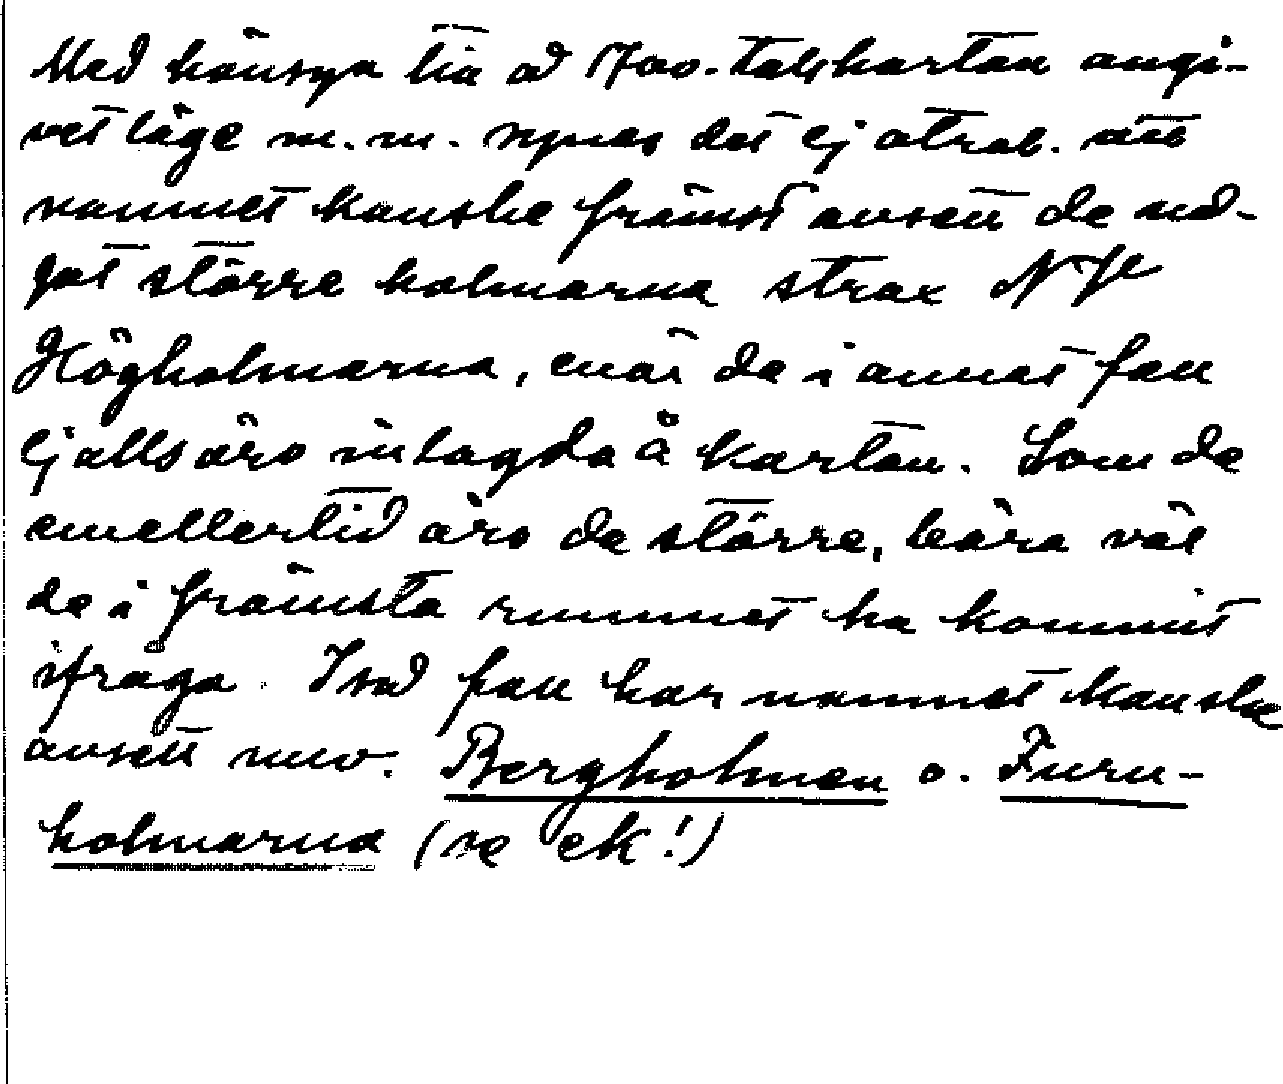 Med hänsyn till å 1700-talskartan angi-
vet läge m.m. synes det ej otrol. att
namnet kanske främst avsett de nå-
got större holmarna strax NV
Högholmarna, enär de i annat fall
ej alls äro inlagda å kartan. Som de
emellertid äro de större, böra väl
de i främsta rummet ha kommit
ifråga. I så fall har namnet kanske
avsett nuv. Bergholmen o. Furu-
holmarna (se ek!)